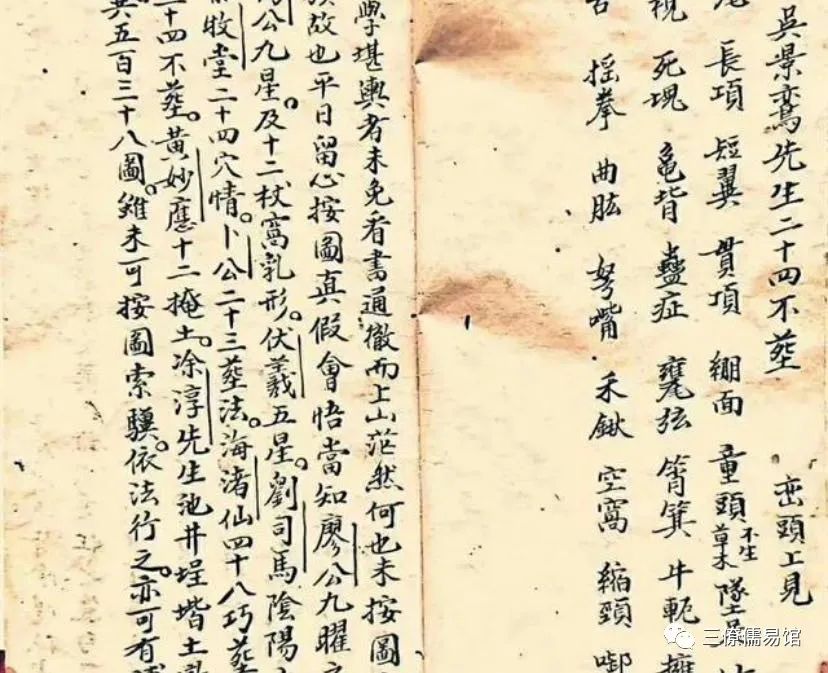 吳景鸞先生二十四不塟 巒頭上見
長項 短翼 貫項 綳面 童頭 不生草木 墜
視 死塊 龜背 蠱症 甕弦 筲箕 牛軛 擁
舌 搖拳 曲肱 努嘴 禾鍬 空窩 縮頸 啣
學堪輿者未免看書通徹而上山茫然何也未按圖
故也平日留心按圖真假會悟當知廖公九曜
公九星及十二杖窩乳形伏羲五星劉司馬陰陽
牧堂二十四穴情卜公二十三塟法海渚仙四十八巧塟
二十四不塟黃妙應十二掩土凃淳先生池井埕堦土
共五百三十八圖雖未可按圖索驥依法行之亦可有
三僚儒易馆